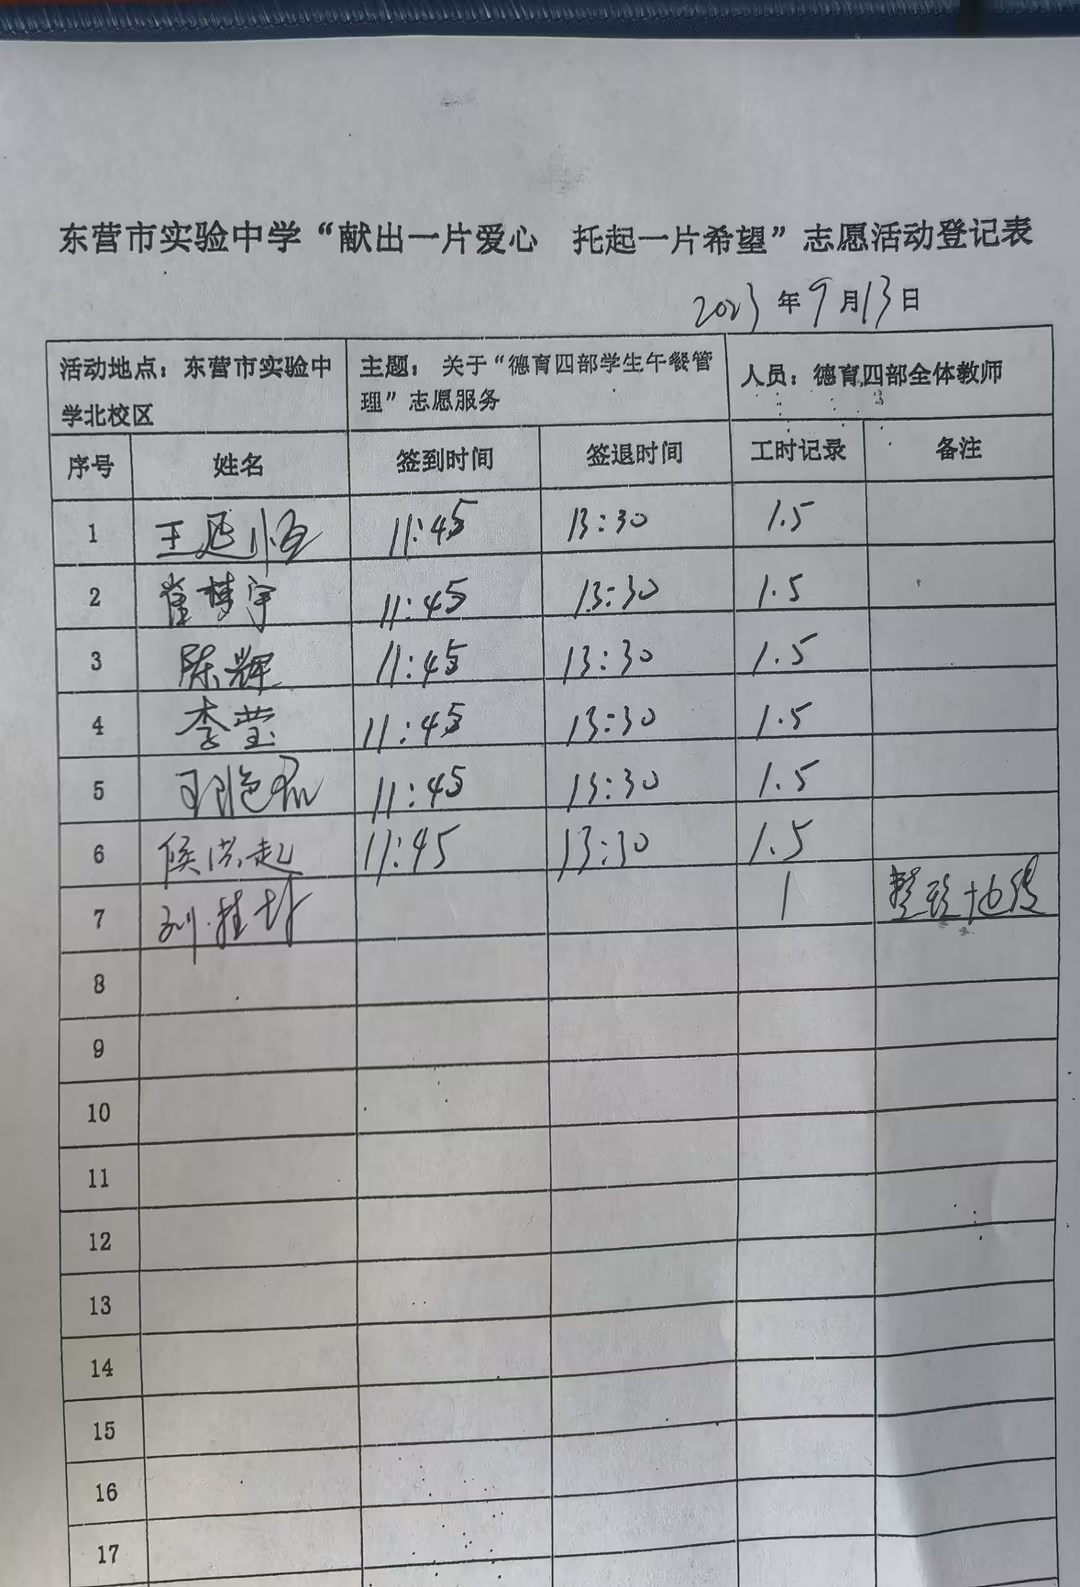 东营市实验中学“献出一片爱心 托起一片希望”志愿活动登记表
2023年9月13日
活动地点：东营市实验中学北校区 主题：关于“德育四部学生午餐管理”志愿服务 人员：德育四部全体教师
序号 姓名 签到时间 签退时间 工时记录 备注
1 王延恒 11:45 13:30 1.5
2 崔梦宇 11:45 13:30 1.5
3 陈辉 11:45 13:30 1.5
4 李莹 11:45 13:30 1.5
5 11:45 13:30 1.5
6 侯洪起 11:45 13:30 1.5
7 1
8
9
10
11
12
13
14
15
16
17